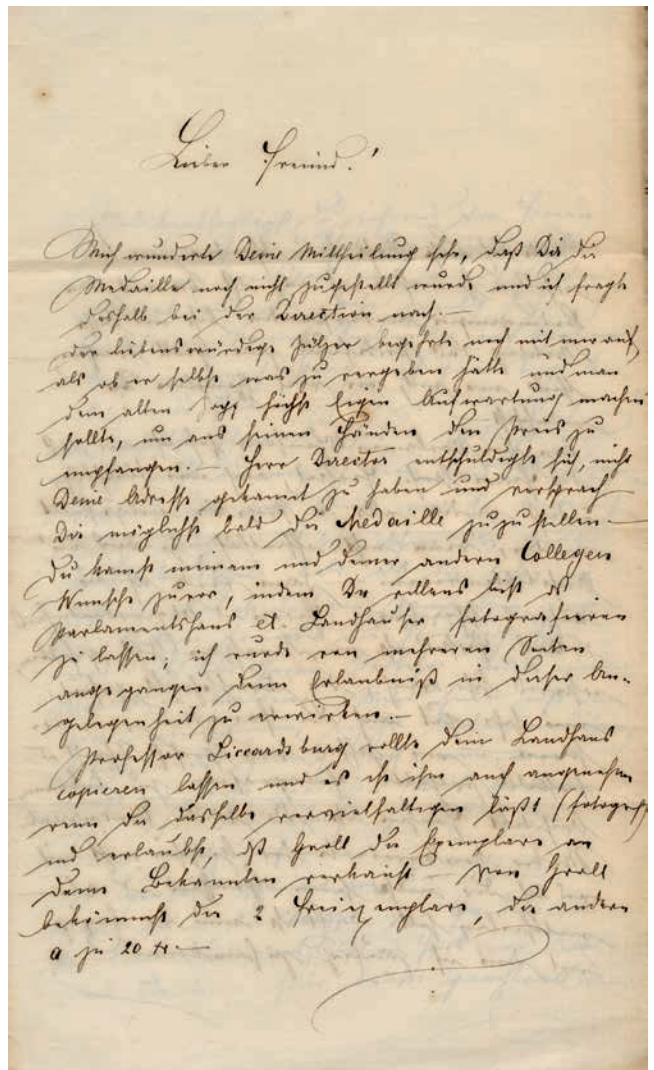 Lieber Freund!
Mich wunderte Deine Mittheilung sehr, daß Dir die
Medaille noch nicht zugestellt wurde und ich fragte
deshalb bei der Direction nach. —
Der liebenswürdige begehrte noch mit mir auf,
als ob er selbst was zu vergeben hätte und man
dem alten höchst Eigen Aufwartung machen
sollte, um aus seinen Händen den Preis zu
empfangen. — Herr Director entschuldigte sich, nicht
Deine Adresse gekannt zu haben und versprach
Dir möglichst bald die Medaille zuzustellen. —
Du kamst meinem und Deiner andern Collegen
Wunsche zuvor, indem Du willens bist
Parlamentshaus et. Landhäuser fotografieren
zu lassen; ich wurde von mehreren Seiten
angegangen Deine Erlaubniß in dieser An-
gelegenheit zu erwirken. —
Professor wollte Dein Landhaus
copieren lassen und es ist ihm auch angenehm
wenn Du dasselbe vervielfältigen läßt (fotograf)
und erlaubst, Groll die Exemplare an
Deine Bekannten verkauft — Von Groll
bekömmst Du 2 Freiexemplare, die andern
a zu 20 x. —